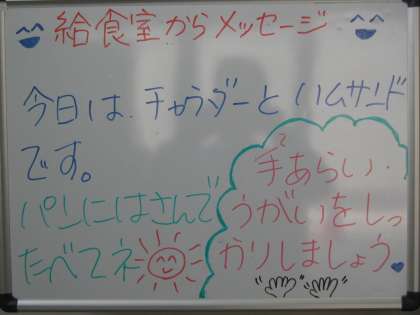 給食室からメッセージ
今日は、チャウダーとハムサンド
です。
パンにはさんで
たべてネ
手あらい・
うがいをしっ
かりしましょう